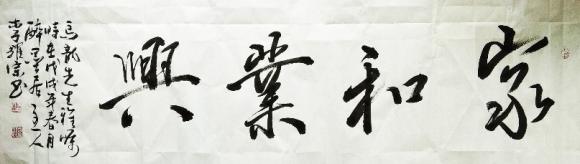 家和業興
马龍先生雅嘱
時在戊戌年春月
醉墨居主人
李雅宗书